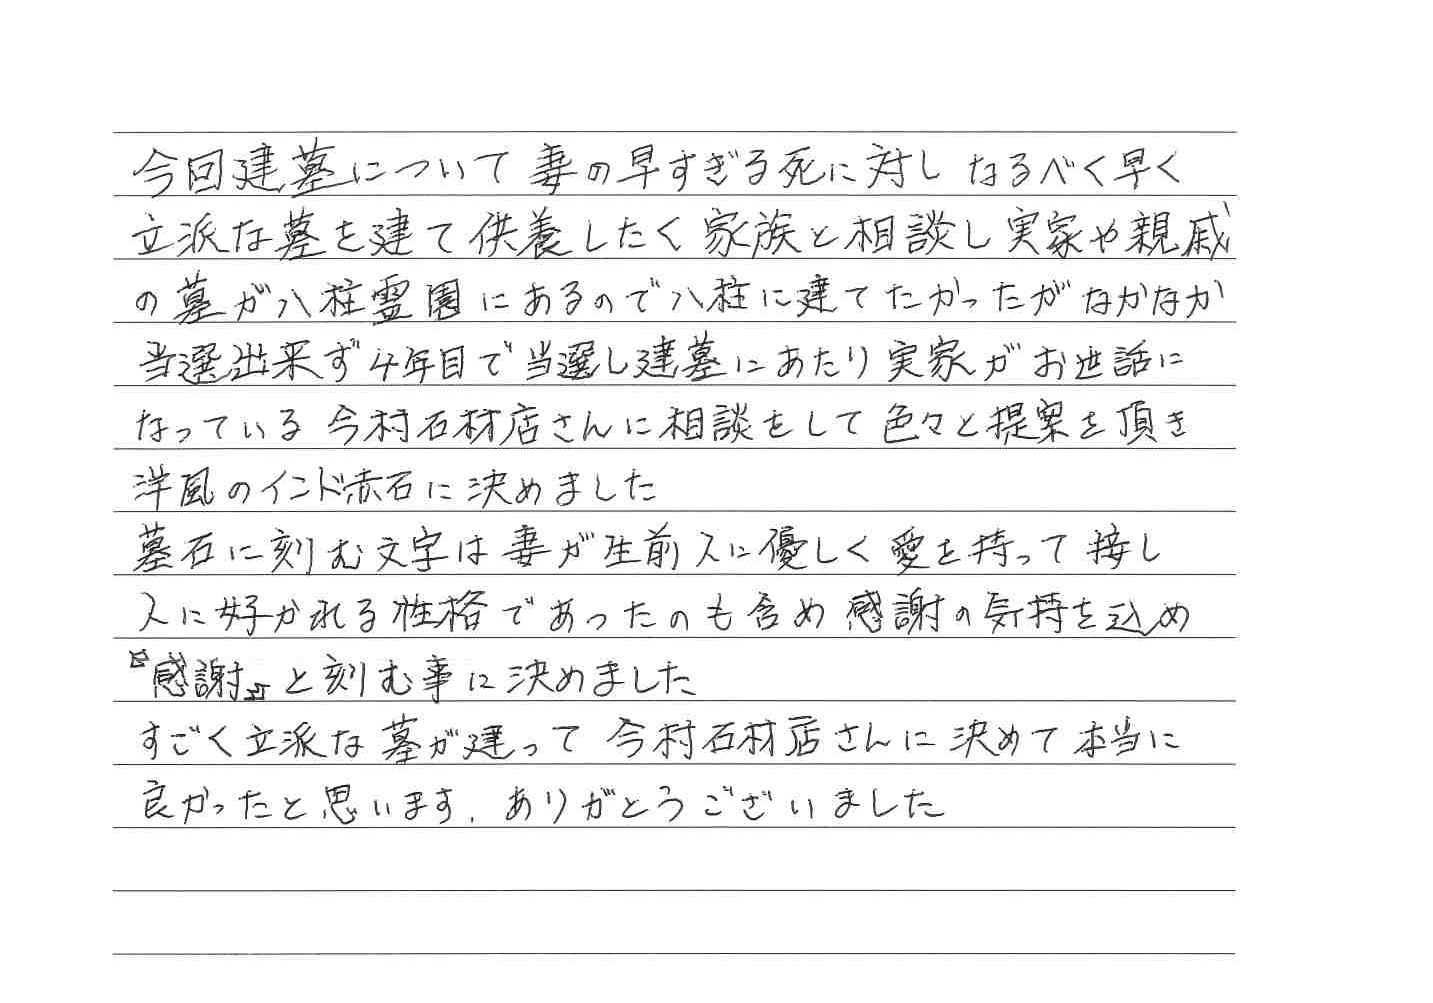 今回建墓について妻の早すぎる死に対しなるべく早く
立派な墓を建て供養したく家族と相談し実家や親戚
の墓が八柱霊園にあるので八柱に建てたかったがなかなか
当選出来ず4年目で当選し建墓にあたり実家がお世話に
なっている今村石材店さんに相談をして色々と提案を頂き
洋風のインド赤石に決めました
墓石に刻む文字は妻が生前人に優しく愛を持って接し
人に好かれる性格であったのも含め感謝の気持を込め
『感謝』と刻む事に決めました
すごく立派な墓が建って今村石材店さんに決めて本当に
良かったと思います。ありがとうございました